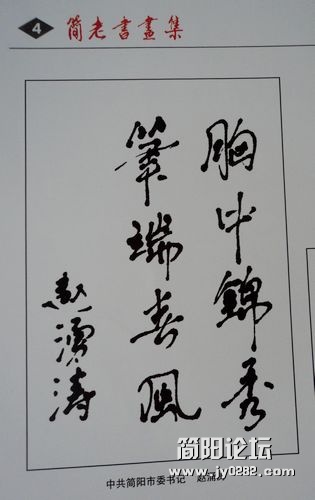 4 简老書畫集
胸中錦秀
筆端春風
赵涌涛
中共简阳市委书记 赵涌涛
简阳论坛
www.jy0282.com